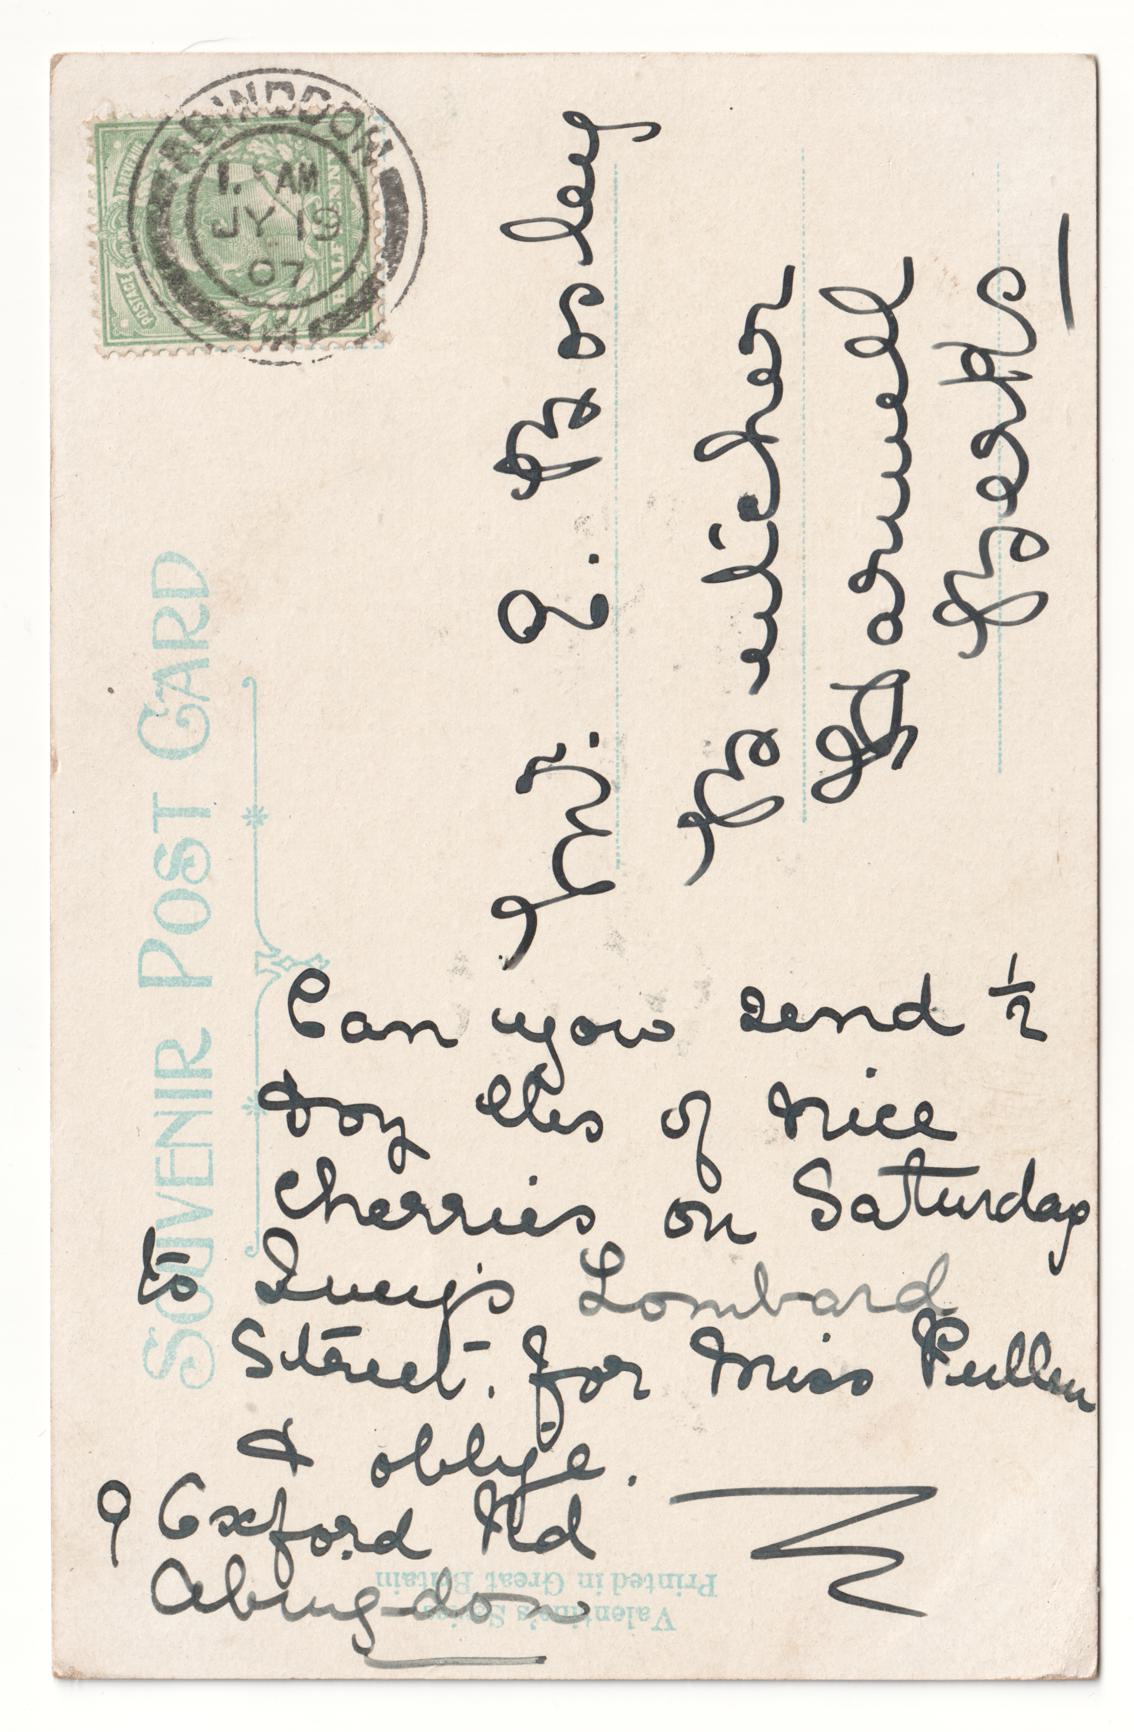 SOUVENIR POST CARD
ABINGDON
1. AM
JY 19
07
POSTAGE
HALF PENNY
Mr. E. Bosley
Butcher
Harwell
Berks
Can you send ½
doz lbs of nice
Cherries on Saturday
to Ivey's Lombard
Street. for Miss Pullen
& oblige.
9 Oxford Rd
Abingdon
Valentine's Series
Printed in Great Britain